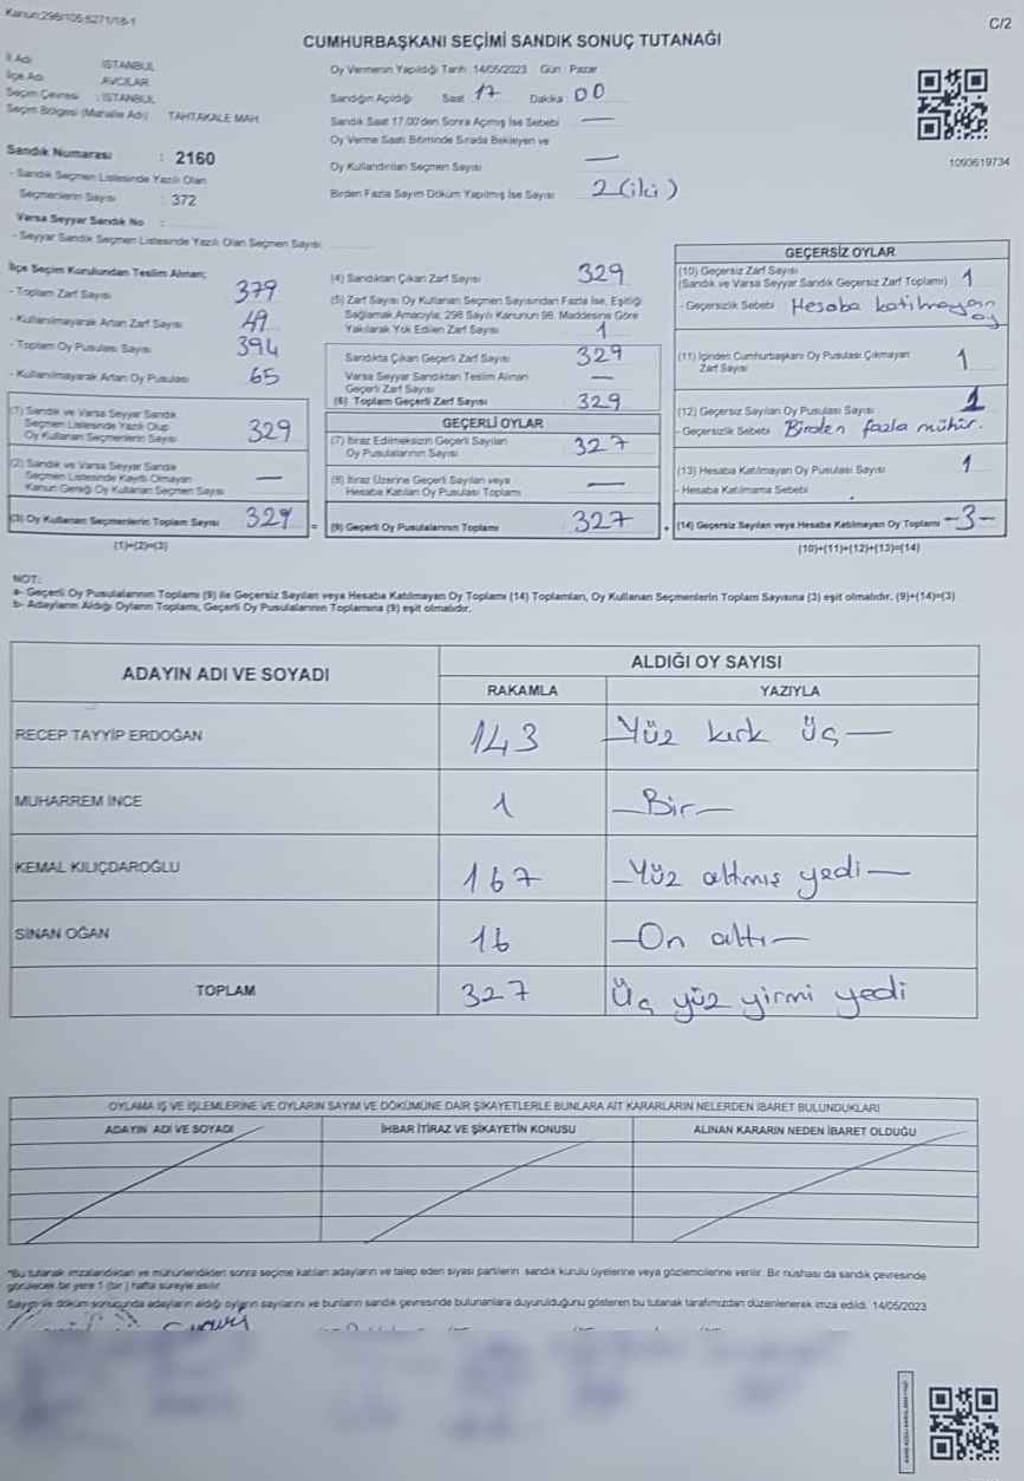 Kanun:298/105-6271/18-1
C/2
CUMHURBAŞKANI SEÇİMİ SANDIK SONUÇ TUTANAĞI
İl Adı İSTANBUL
İlçe Adı AVCILAR
Seçim Çevresi : İSTANBUL
Seçim Bölgesi (Mahalle Adı) TAHTAKALE MAH.
Sandık Numarası : 2160
- Sandık Seçmen Listesinde Yazılı Olan
Seçmenlerin Sayısı : 372
Varsa Seyyar Sandık No :
- Seyyar Sandık Seçmen Listesinde Yazılı Olan Seçmen Sayısı
Oy Vermenin Yapıldığı Tarih : 14/05/2023 Gün : Pazar
Sandığın Açıldığı Saat 17 Dakika : 00
Sandık Saat 17.00'den Sonra Açılmış İse Sebebi —
Oy Verme Saati Bitiminde Sırada Bekleyen ve
Oy Kullandırılan Seçmen Sayısı —
Birden Fazla Sayım Döküm Yapılmış İse Sayısı 2 (iki)
1090619734
İlçe Seçim Kurulundan Teslim Alınan;
- Toplam Zarf Sayısı 379
- Kullanılmayarak Artan Zarf Sayısı 49
- Toplam Oy Pusulası Sayısı 394
- Kullanılmayarak Artan Oy Pusulası 65
(1) Sandık ve Varsa Seyyar Sandık
Seçmen Listesinde Yazılı Olup
Oy Kullanan Seçmenlerin Sayısı 329
(2) Sandık ve Varsa Seyyar Sandık
Seçmen Listesinde Kayıtlı Olmayan
Kanun Gereği Oy Kullanan Seçmen Sayısı —
(3) Oy Kullanan Seçmenlerin Toplam Sayısı 329
(1)+(2)=(3)
(4) Sandıktan Çıkan Zarf Sayısı 329
(5) Zarf Sayısı Oy Kullanan Seçmen Sayısından Fazla İse, Eşitliği
Sağlamak Amacıyla, 298 Sayılı Kanunun 98. Maddesine Göre
Yakılarak Yok Edilen Zarf Sayısı 1
Sandıkta Çıkan Geçerli Zarf Sayısı 329
Varsa Seyyar Sandıktan Teslim Alınan
Geçerli Zarf Sayısı —
(6) Toplam Geçerli Zarf Sayısı 329
GEÇERLİ OYLAR
(7) İtiraz Edilmeksizin Geçerli Sayılan
Oy Pusulalarının Sayısı 327
(8) İtiraz Üzerine Geçerli Sayılan veya
Hesaba Katılan Oy Pusulası Toplamı —
= (9) Geçerli Oy Pusulalarının Toplamı 327
GEÇERSİZ OYLAR
(10) Geçersiz Zarf Sayısı
(Sandık ve Varsa Seyyar Sandık Geçersiz Zarf Toplamı) 1
- Geçersizlik Sebebi Hesaba katılmayan
oy
(11) İçinden Cumhurbaşkanı Oy Pusulası Çıkmayan
Zarf Sayısı 1
(12) Geçersiz Sayılan Oy Pusulası Sayısı 1
- Geçersizlik Sebebi Birden fazla mühür.
(13) Hesaba Katılmayan Oy Pusulası Sayısı 1
- Hesaba Katılmama Sebebi
+ (14) Geçersiz Sayılan veya Hesaba Katılmayan Oy Toplamı -3-
(10)+(11)+(12)+(13)=(14)
NOT:
a- Geçerli Oy Pusulalarının Toplamı (9) ile Geçersiz Sayılan veya Hesaba Katılmayan Oy Toplamı (14) Toplamları, Oy Kullanan Seçmenlerin Toplam Sayısına (3) eşit olmalıdır. (9)+(14)=(3)
b- Adayların Aldığı Oyların Toplamı, Geçerli Oy Pusulalarının Toplamına (9) eşit olmalıdır.
ADAYIN ADI VE SOYADI
ALDIĞI OY SAYISI
RAKAMLA YAZIYLA
RECEP TAYYİP ERDOĞAN 143 Yüz kırk üç —
MUHARREM İNCE 1 — Bir —
KEMAL KILIÇDAROĞLU 167 — Yüz altmış yedi —
SİNAN OĞAN 16 — On altı —
TOPLAM 327 Üç yüz yirmi yedi
OYLAMA İŞ VE İŞLEMLERİNE VE OYLARIN SAYIM VE DÖKÜMÜNE DAİR ŞİKAYETLERLE BUNLARA AİT KARARLARIN NELERDEN İBARET BULUNDUKLARI
ADAYIN ADI VE SOYADI İHBAR İTİRAZ VE ŞİKAYETİN KONUSU ALINAN KARARIN NEDEN İBARET OLDUĞU
*Bu tutanak imzalandıktan ve mühürlendikten sonra seçime katılan adayların ve talep eden siyasi partilerin sandık kurulu üyelerine veya gözlemcilerine verilir. Bir nüshası da sandık çevresinde
görülecek bir yere 1 (bir) hafta süreyle asılır.
Sayım ve döküm sonucunda adayların aldığı oyların sayılarını ve bunların sandık çevresinde bulunanlara duyurulduğunu gösteren bu tutanak tarafımızdan düzenlenerek imza edildi. 14/05/2023